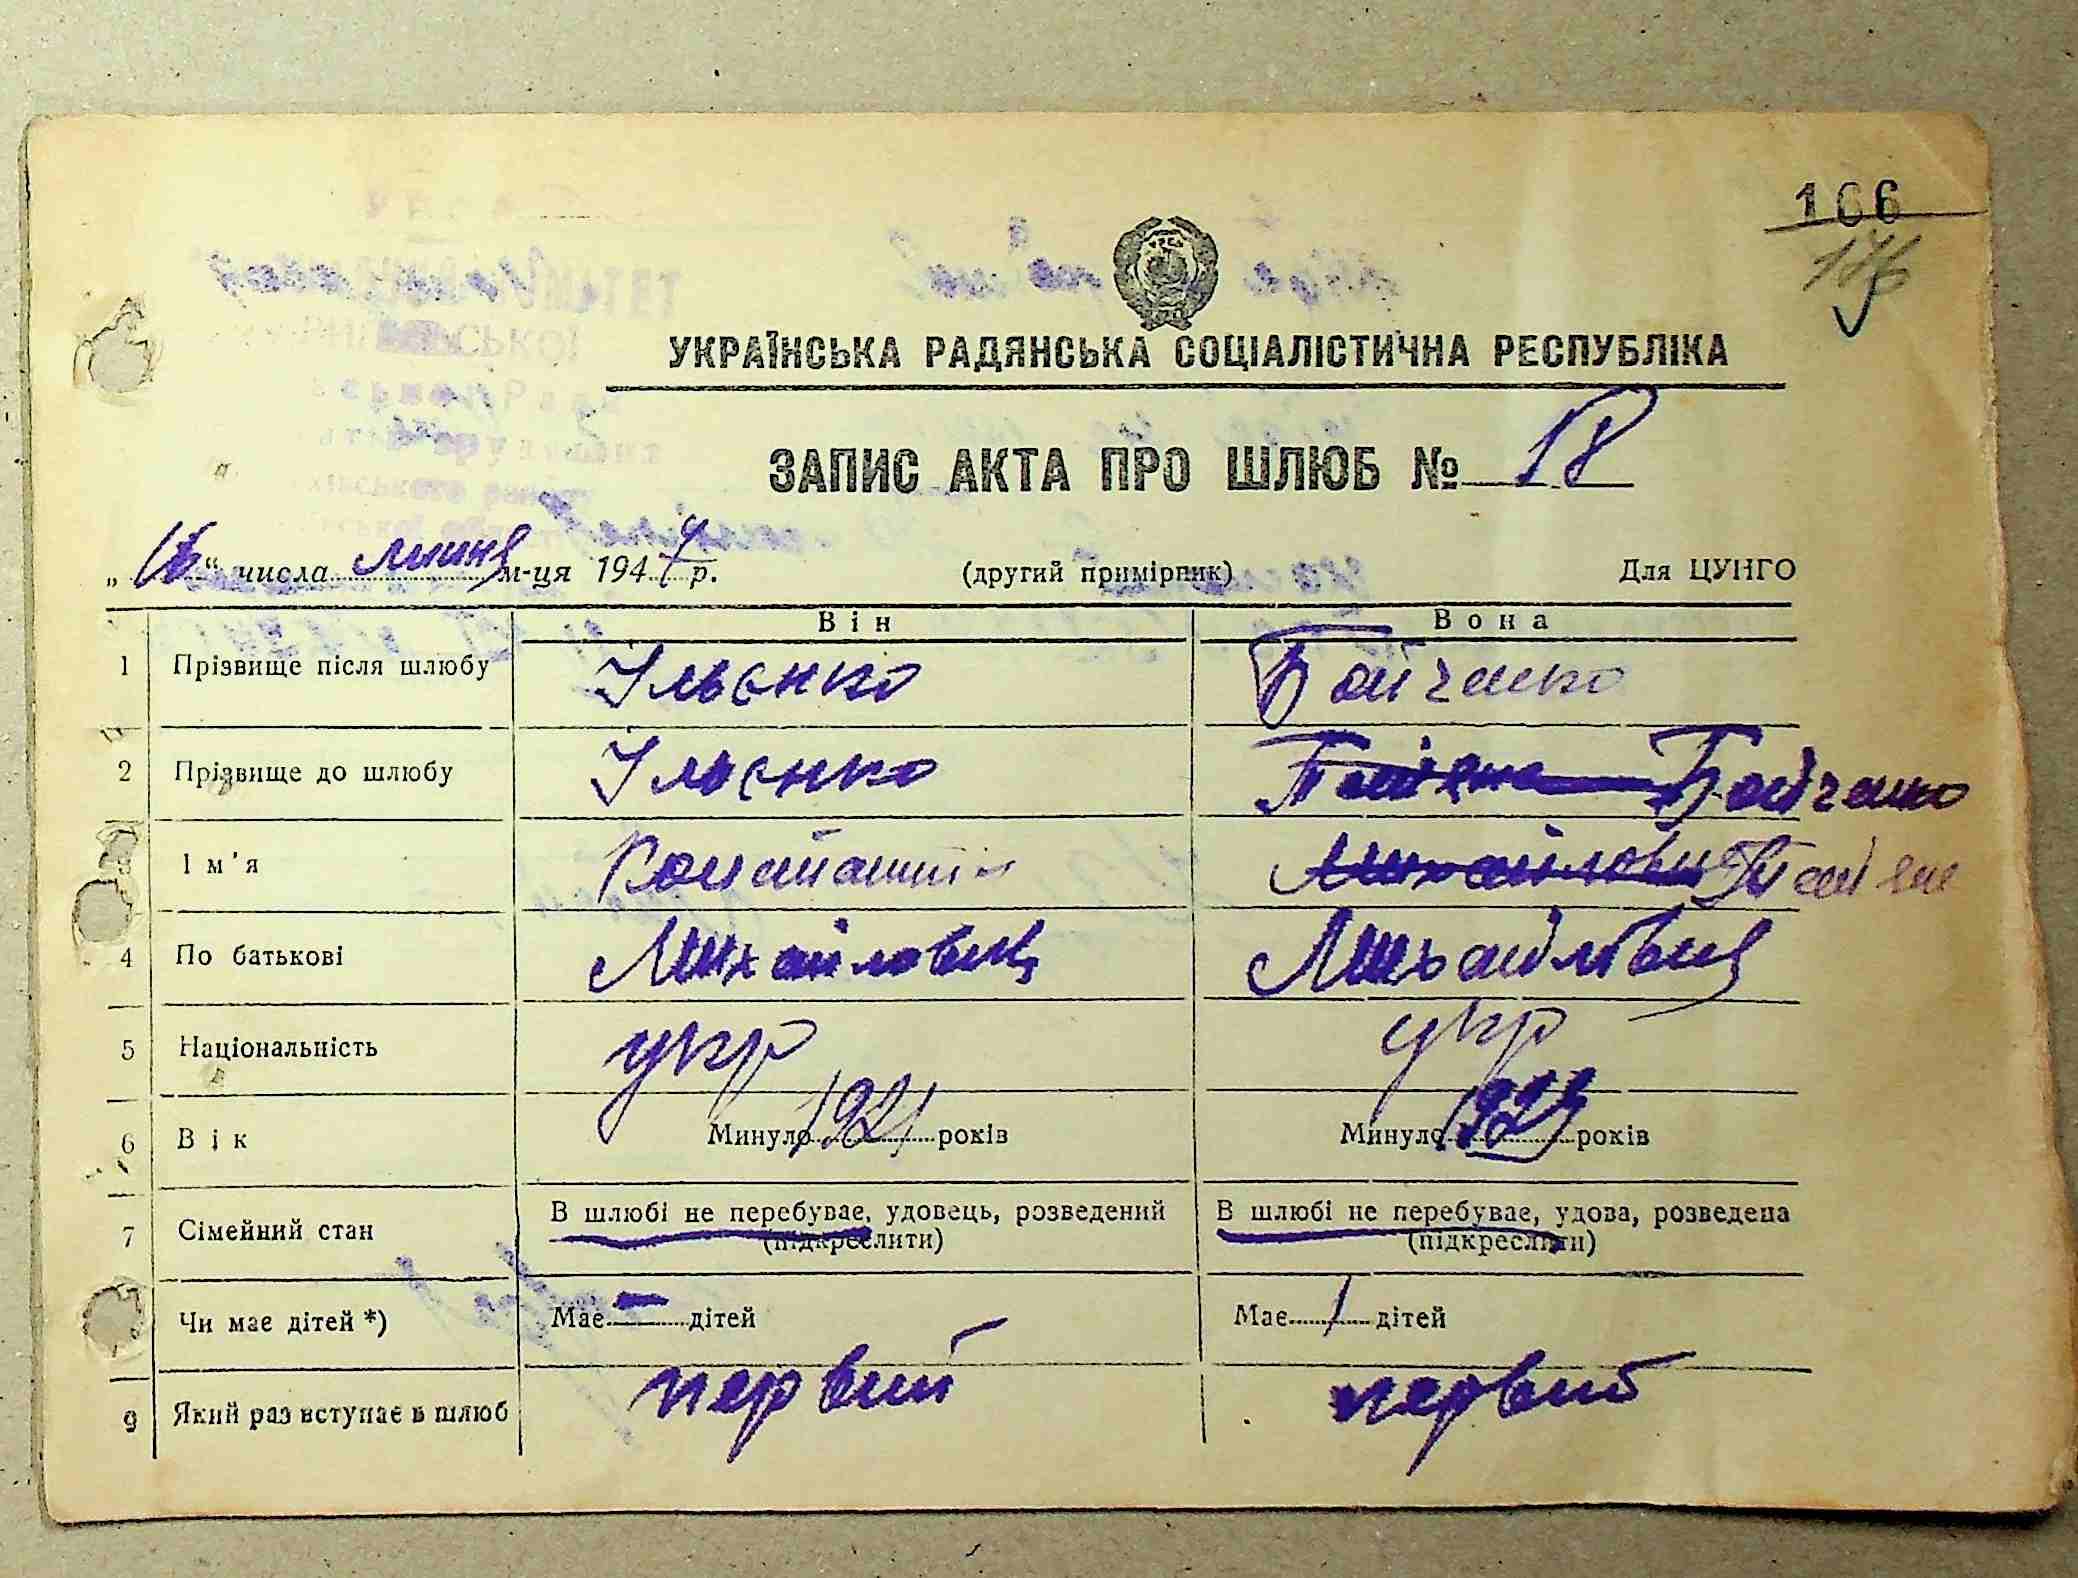 166
176
УКРАЇНСЬКА РАДЯНСЬКА СОЦІАЛІСТИЧНА РЕСПУБЛІКА
ЗАПИС АКТА ПРО ШЛЮБ № 18
„ 16 “ числа липня м-ця 1947 р. (другий примірник) Для ЦУНГО
Він Вона
1 Прізвище після шлюбу Ільєнко Бойченко
2 Прізвище до шлюбу Ільєнко Бойченко
3 Ім'я Констянтин
4 По батькові Михайлович Михайлівна
5 Національність укр укр
6 Вік Минуло 1921 років Минуло 1923 років
7 Сімейний стан В шлюбі не перебуває, удовець, розведений В шлюбі не перебуває, удова, розведена
(підкреслити) (підкреслити)
Чи має дітей *) Має — дітей Має 1 дітей
9 Який раз вступає в шлюб первий первий